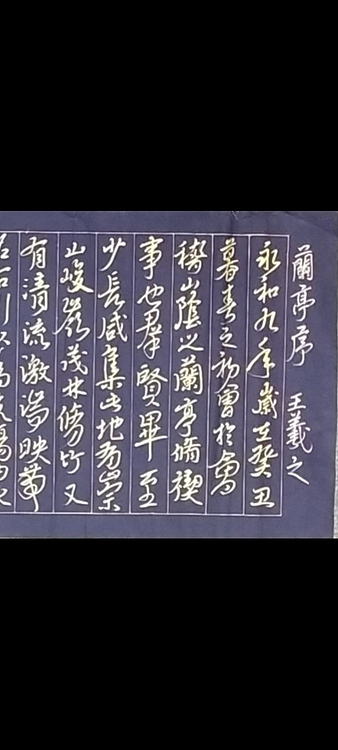 蘭亭序 王羲之
永和九年歲在癸丑
暮春之初會於會
稽山陰之蘭亭脩禊
事也羣賢畢至
少長咸集此地有崇
山峻嶺茂林脩竹又
有清流激湍映帶